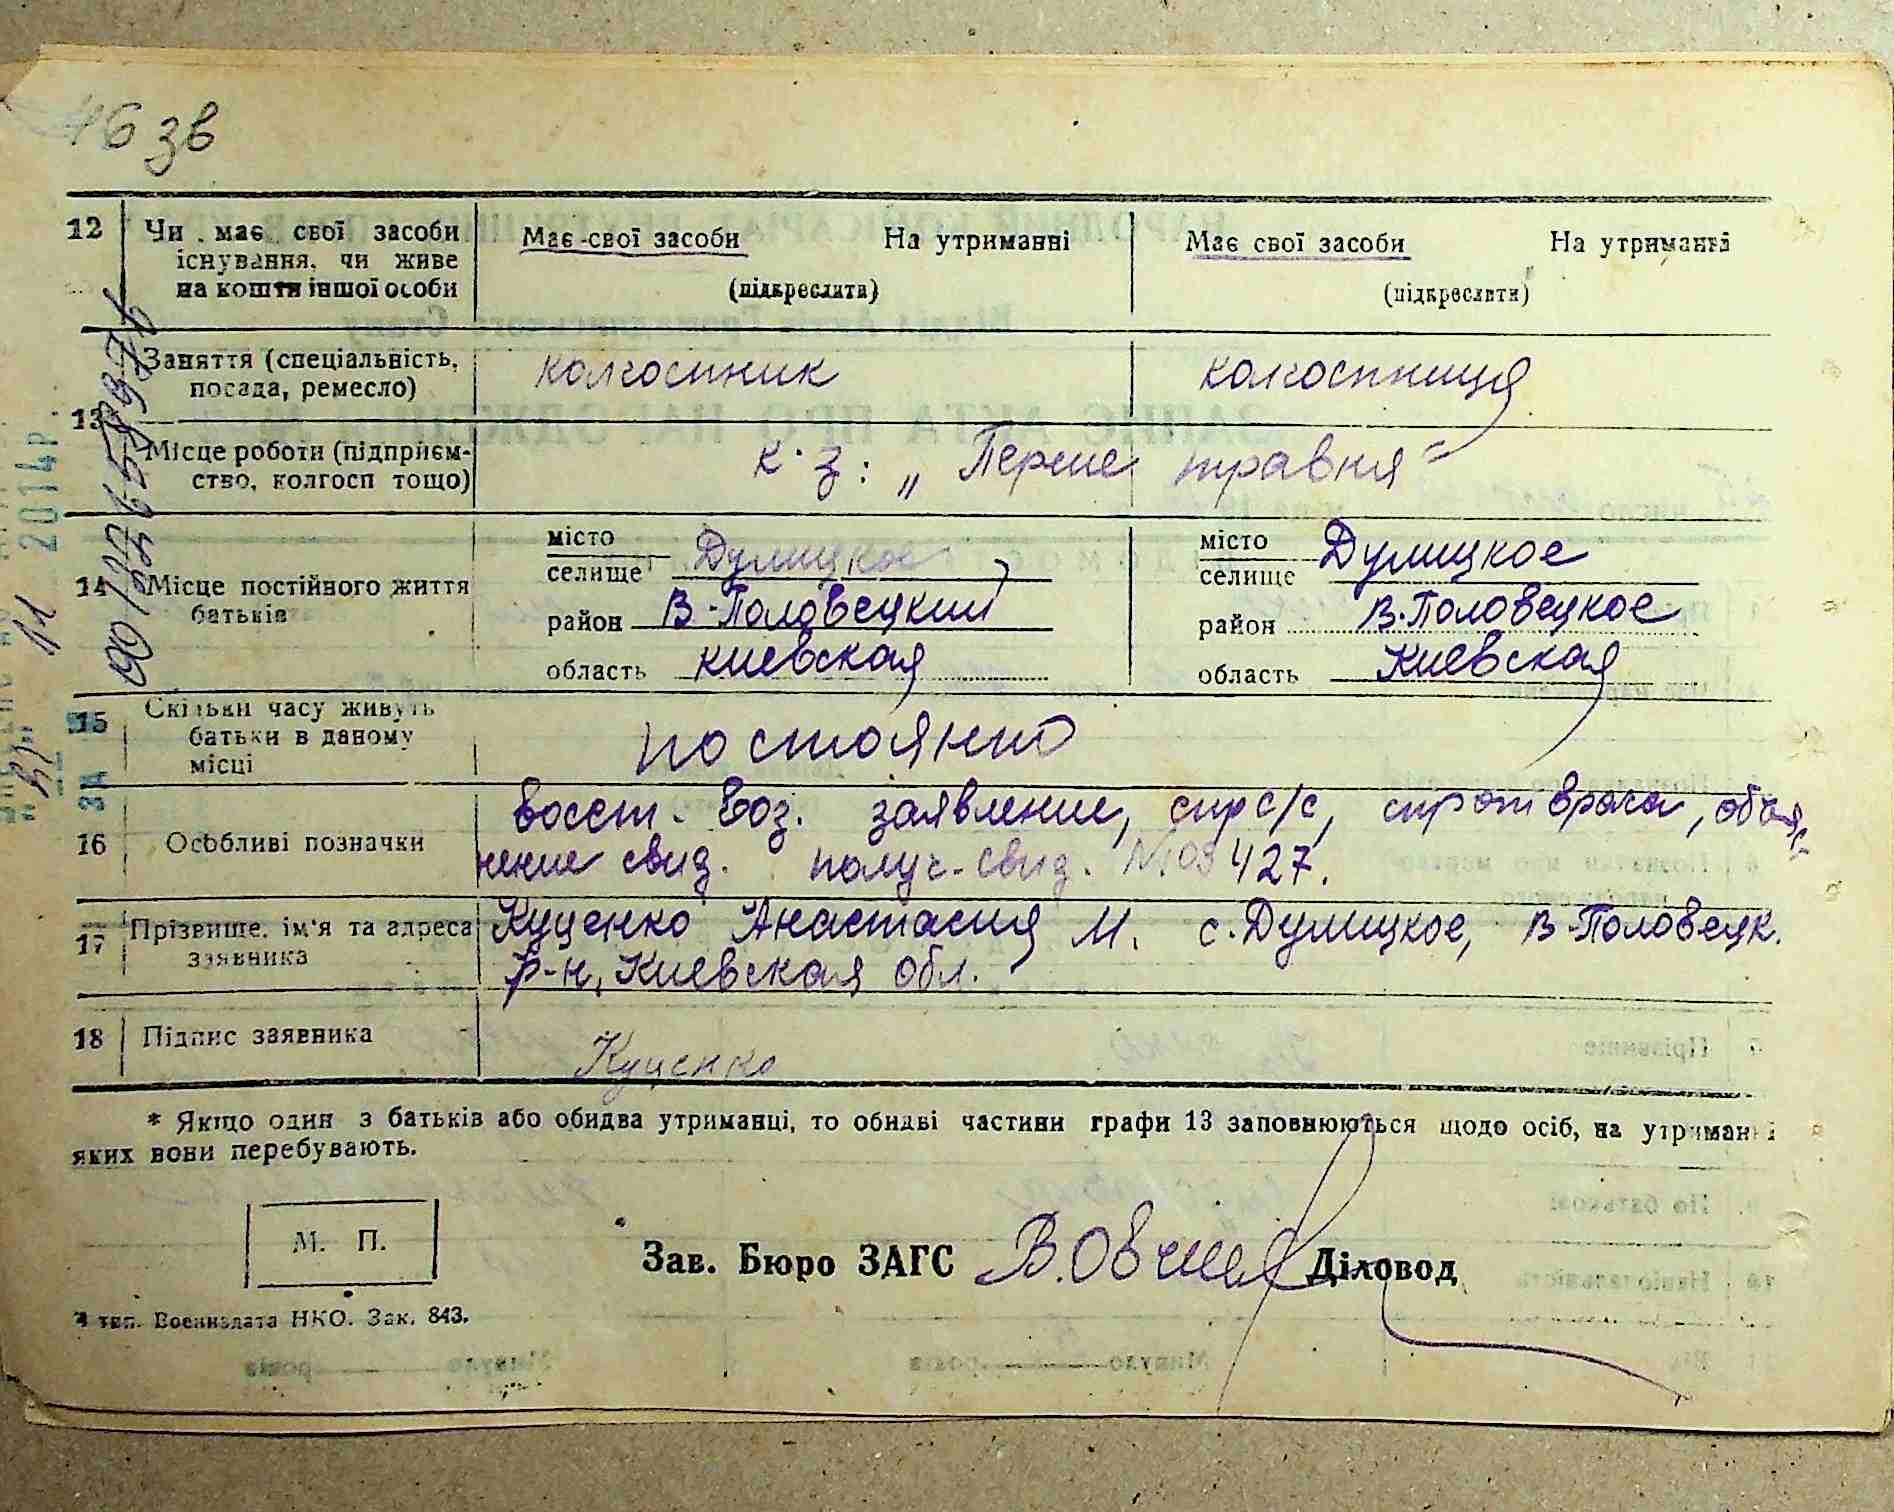 46 зв
12 Чи має свої засоби існування, чи живе на кошти іншої особи
Має свої засоби На утриманні
(підкреслити)
Має свої засоби На утриманні
(підкреслити)
13
Заняття (спеціальність, посада, ремесло)
колгоспник колгоспниця
Місце роботи (підприємство, колгосп тощо)
к.з: „Перше травня"
14 Місце постійного життя батьків
місто
селище Дулицкое
район В-Половецкий
область киевская
місто
селище Дулицкое
район В.Половецкое
область Киевская
15 Скільки часу живуть батьки в даному місці
постояно
16 Особливі позначки
восст. воз. заявление, спр с/с, спр от врача, объяс-
нение свид. получ. свид. 427.
17 Прізвище, ім'я та адреса заявника
Куценко Анастасия М. с. Дулицкое, В-Половецк.
р-н, Киевская обл.
18 Підпис заявника
Куценко
* Якщо один з батьків або обидва утриманці, то обидві частини графи 13 заповнюються щодо осіб, на утриманні
яких вони перебувають.
М. П.
Зав. Бюро ЗАГС Діловод
тип. Воениздата НКО. Зак. 843.
11 2014р.